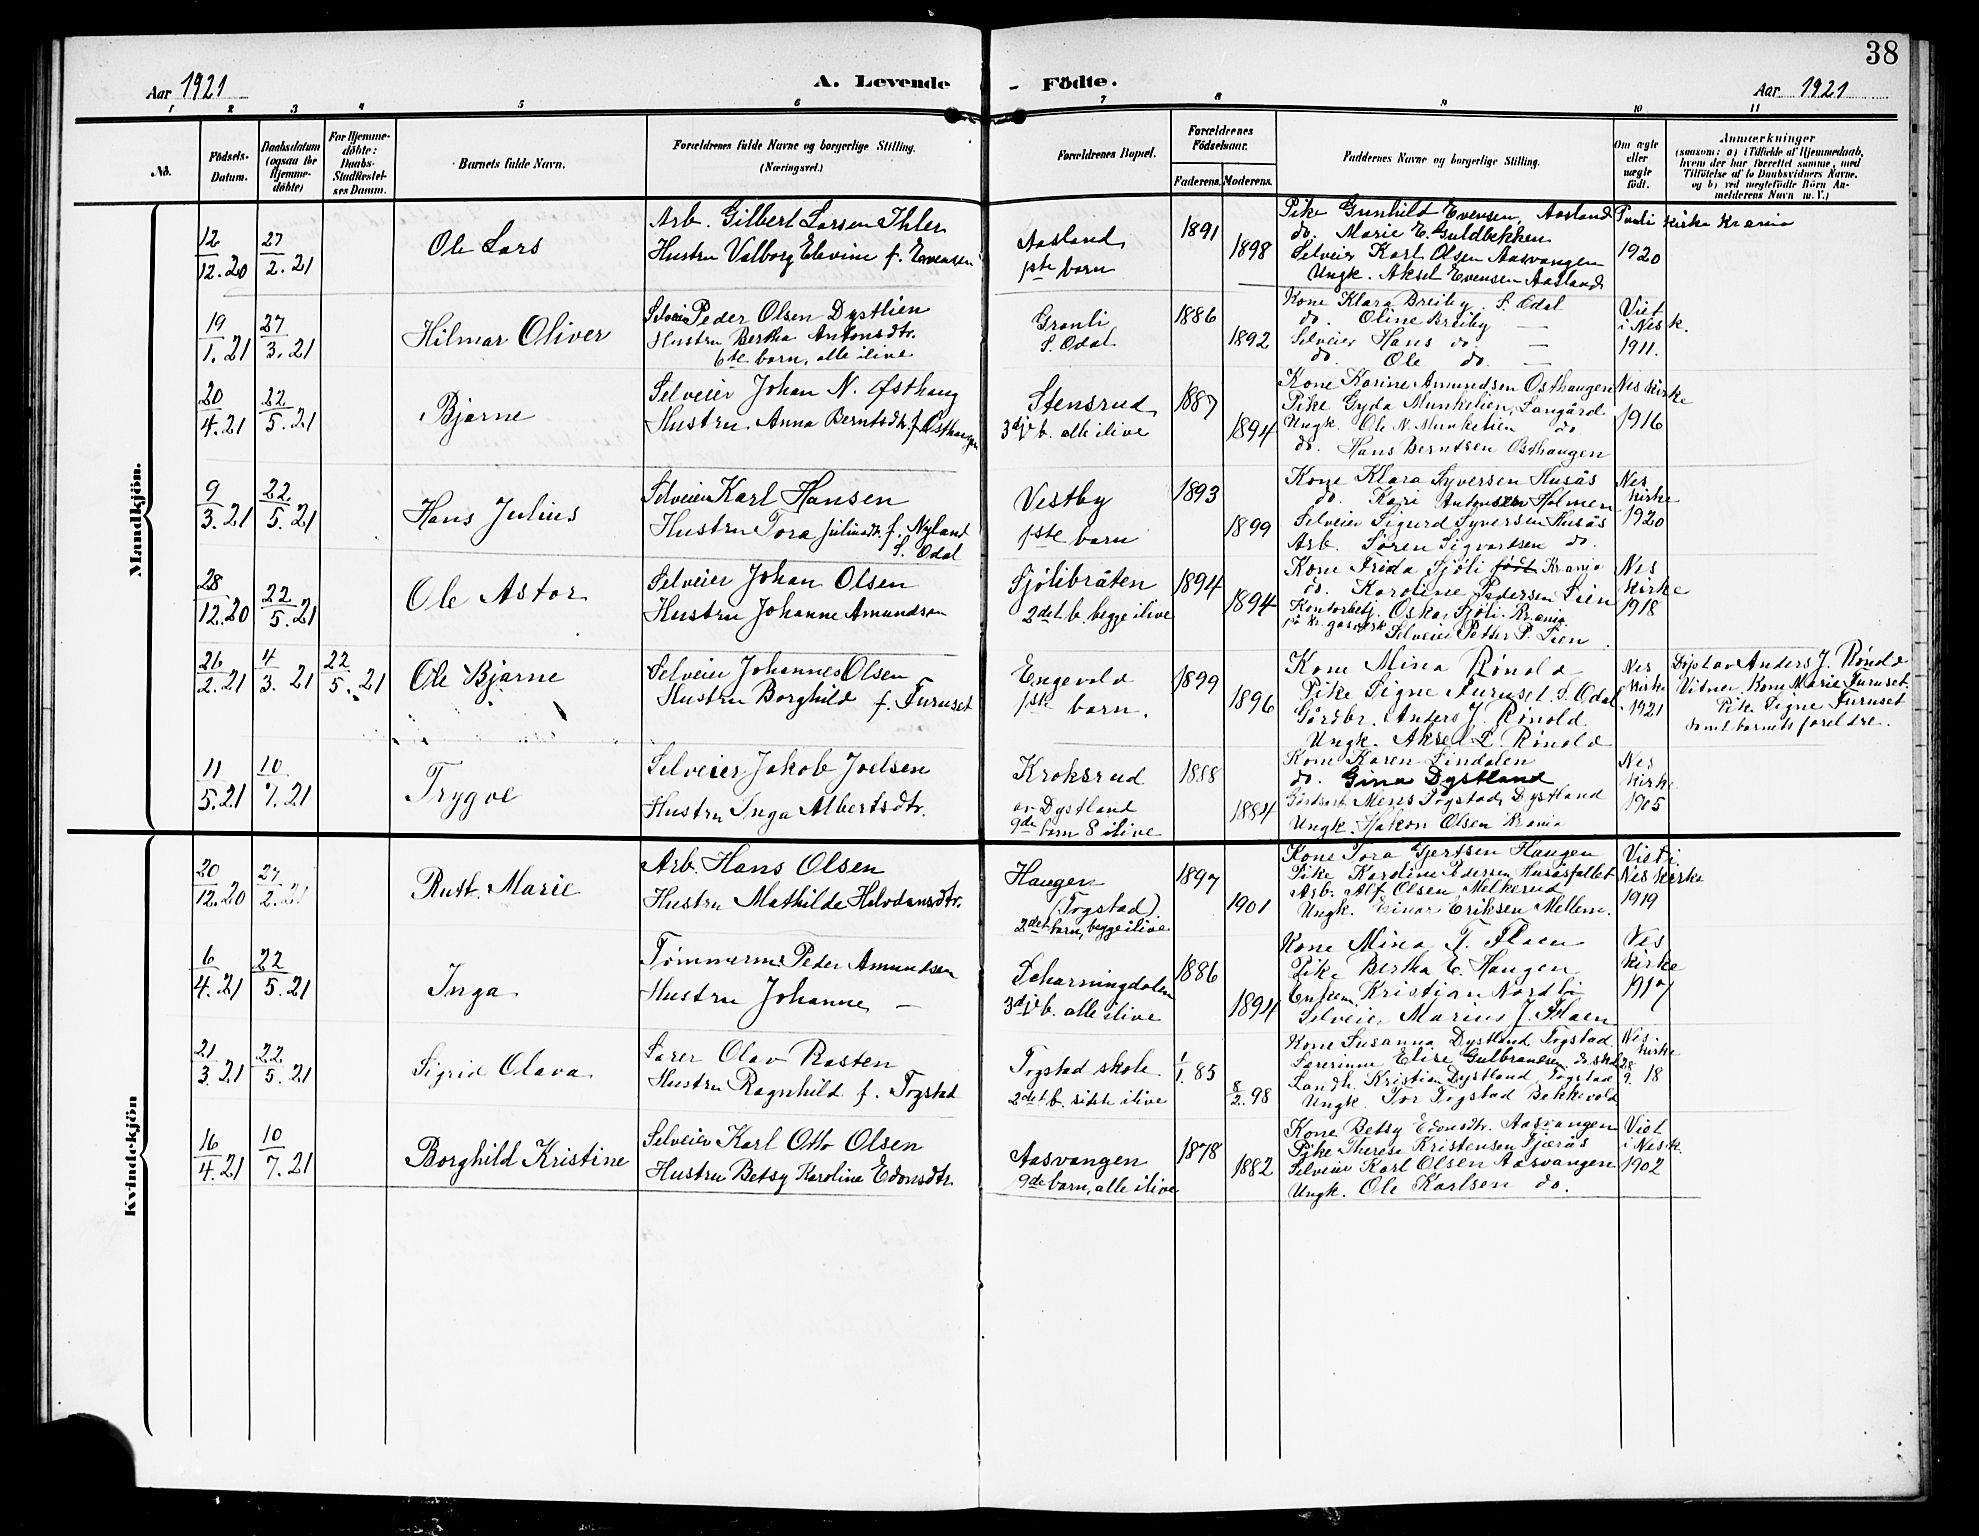 38
Aar 1921
A. Levende - Födte.
Aar 1921
1 2 3 4 5 6 7 8 9 10 11
No.
Födsels-Datum.
Daabsdatum (ogsaa for Hjemme-döbte)
For Hjemme-döbte: Daabs-Stadfæstel-ses Datum.
Barnets fulde Navn.
Forældrenes fulde Navne og borgerlige Stilling. (Næringsvei.)
Forældrenes Bopæl.
Forældrenes Födselsaar.
Faderens. Moderens.
Faddernes Navne og borgerlige Stilling.
Om ægte eller uægte födt.
Anmærkninger
(saasom: a) i Tilfælde af Hjemmedaab, hvem der har forrettet samme, med Tilföielse af to Daabsvidners Navne, og b) ved uægtefödte Börn An-melderens Navn m. V.)
Mandkjön.
12/12.20 27/2.21
Ole Lars
Arb. Gilbert Larsen Ihler
Hustru Valborg Elevine f. Evensen
Aasland
1ste barn
1891
1898
Pike Gunhild Evensen, Aasland
do. Marie E. Guldbekken
Selveier Karl Olsen Aasvangen
Ungk. Aksel Evensen Aasland
Pauli kirke Krania
1920
19/1.21 27/3.21
Hilmar Oliver
Selveier Peder Olsen Dystlien
Hustru Bertha Antonsdtr.
6te barn, alle ilive
Granli
S. Odal
1886
1892
Kone Klara Breiby, S. Odal
do. Oline Breiby —
Selveier Hans do. —
do. Ole do. —
Viet
i Nes k.
1911.
20/4.21 22/5.21
Bjarne
Selveier Johan N. Østhaug
Hustru. Anna Berntsdtr. f. Østhaugen
Stensrud
3dje b. alle ilive
1887
1894
Kone Karine Amundsen Østhaugen
Pike Gyda Munkelien, Langård
Ungk. Ole N. Munkelien do
do. Hans Berntsen Østhaugen
Nes kirke
1916
9/3.21 22/5.21
Hans Julius
Selveier Karl Hansen
Hustru Tora Juliusdtr. f. Nyland
S. Odal
Vestby
1ste barn
1893
1899
Kone Klara Syversen Husås
do. Kari Antonsen Holmen
Selveier Sigurd Syversen Husås
Arb. Søren Sigvartsen do.
Nes
kirke
1920
28/12.20 22/5.21
Ole Astor
Selveier Johan Olsen
Hustru Johanne Amundsen
Sjølibråten
2det b. begge ilive
1894
1894
Kone Frida Sjøli født Krania
do. Karoline Pedersen Lien
Kontorbetj. Oskar Sjøli. Krania
på Kr. gasverk Selveier Petter P. Lien
Nes
kirke
1918
26/2.21 4/3.21 22/5.21
Ole Bjarne
Selveier Johannes Olsen
Hustru Borghild f. Furuset
Engevold
1ste barn.
1899
1896
Kone Mina Rønold
Pike Signe Furuset. S. Odal
Gårdbr. Anders J. Rønold
Ungk. Aksel L. Rønold
Nes
kirke
1921
Døpt av Anders J. Rønold
Vitner Kone Marie Furuset.
Pike Signe Furuset
samt barnets foreldre.
11/5.21 10/7.21
Trygve
Selveier Jakob Joelsen
Hustru Inga Albertsdtr.
Kroksrud
av Dystland
9de barn 8 ilive
1888
1884
Kone Karen Lindalen
do. Gina Dystland
Gårdsarb. Menes Togstad, Dystland
Ungk. Håkon Olsen Krania
Nes
kirke
1905
Kvindekjön
20/12.20 27/2.21
Rutt Marie
Arb. Hans Olsen
Hustru Mathilde Halvdansdtr.
Haugen
(Togstad).
2det barn, begge ilive
1897
1901
Kone Tora Gjertsen Haugen
Pike Karoline Pedersen Husåsfallet
Arb. Alf Olsen Melkerud
Ungk. Einar Eriksen Mellem.
Viet i
Nes kirke
1919
6/4.21 22/5.21
Inga
Tømmerm. Peder Amundsen
Hustru Johanne —
Scharningdalen
3dje b. alle ilive
1886
1894
Kone Mina T. Floen
Pike Bertha E. Haugen
Enkem. Kristian Nordli
Selveier Marius J. Floen
Nes
kirke
1917
21/3.21 22/5.21
Sigrid Olava
Lærer Olav Rasten
Hustru Ragnhild f. Togstad
Togstad skole
2det b. siste ilive
1/1.85
8/2.98
Kone Susanna Dystland Togstad
Lærerinne Elise Gulbrandsen do. skole
Landh. Kristian Dystland Togstad
Ungk. Tor Togstad Bekkevold
Nes
kirke
28/9. 18
16/4.21 10/7.21
Borghild Kristine
Selveier Karl Otto Olsen
Hustru Betsy Karoline Edvnsdtr.
Aasvangen
9de barn, alle ilive
1878
1882
Kone Betsy Edvnsdtr. Aasvangen
Pike Therese Kristensen Fjerås
Selveier Karl Olsen Aasvangen
Ungk. Ole Karlsen do.
Viet
i Nes k.
1902